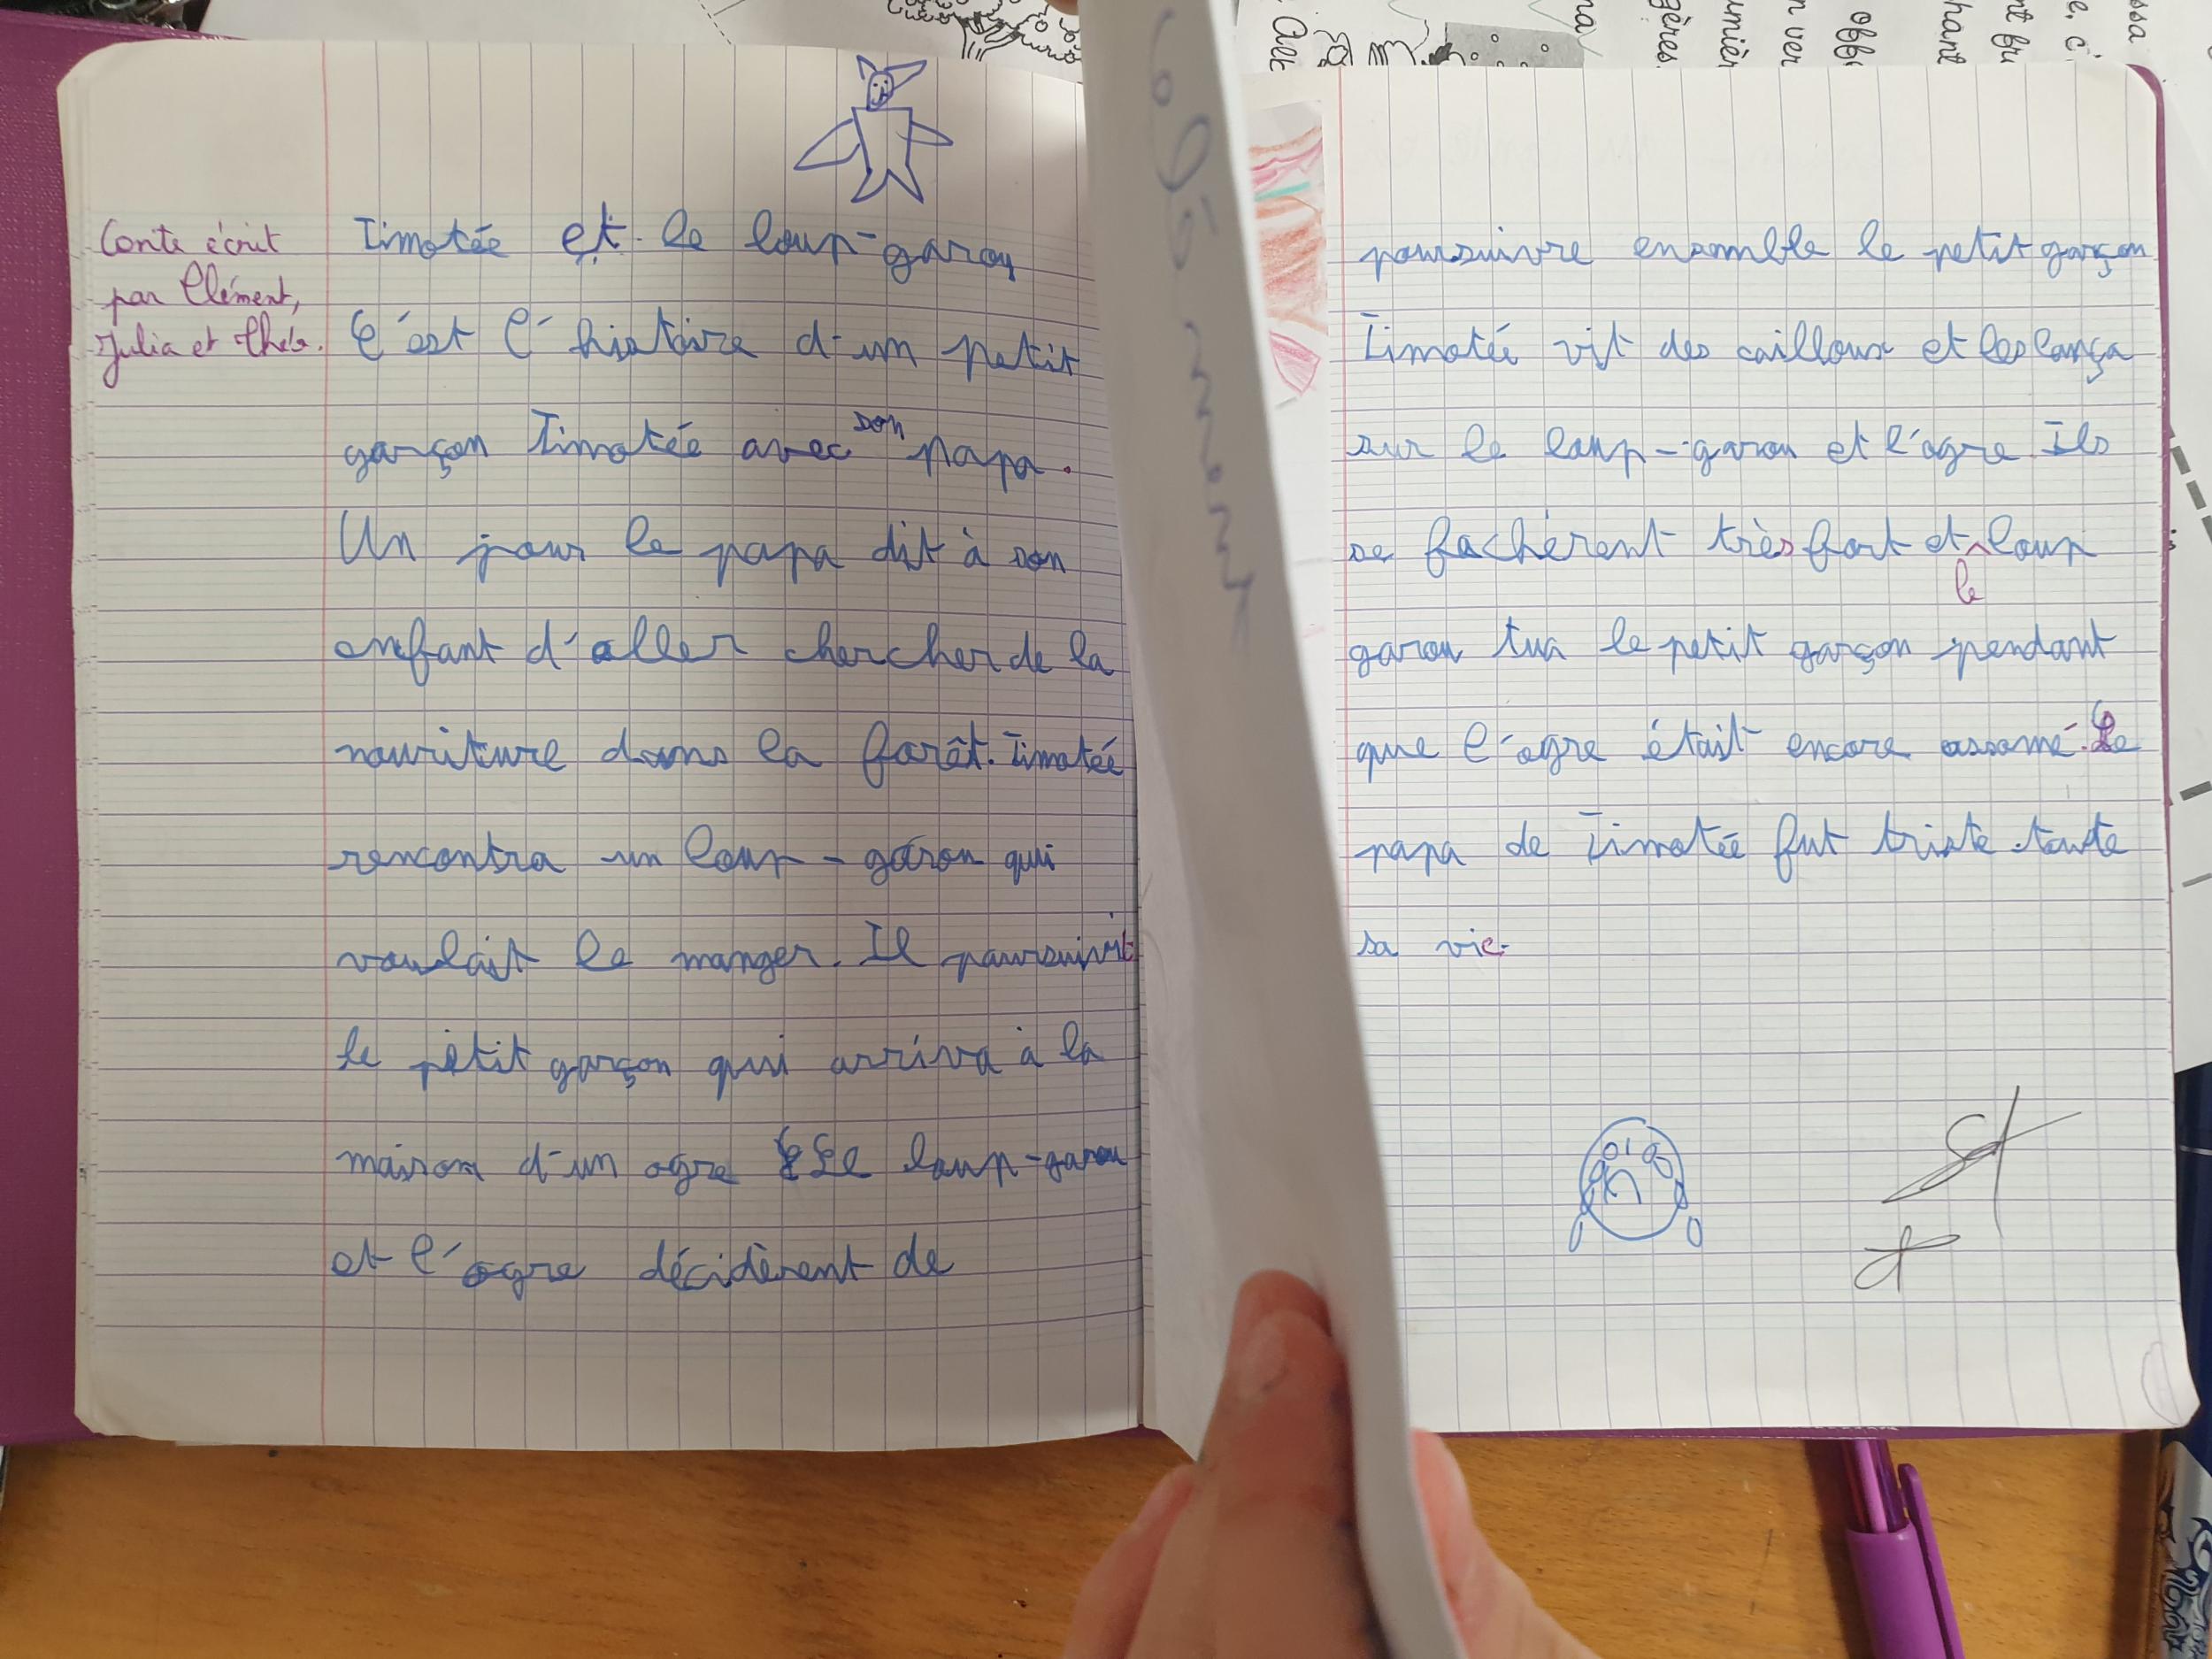 Conte écrit
par Clément,
Julia et Théo.
Timotée et le loup-garou
C'est l'histoire d'un petit
garçon Timotée avec son papa.
Un jour le papa dit à son
enfant d'aller chercher de la
nouriture dans la forêt. Timotée
rencontra un loup-garou qui
voulait le manger. Il poursuivit
le petit garçon qui arriva à la
maison d'un ogre Le loup-garou
et l'ogre décidèrent de
poursuivre ensemble le petit garçon
Timotée vit des cailloux et les lança
sur le loup-garou et l'ogre. Ils
se fachèrent très fort et le loup
garou tua le petit garçon pendant
que l'ogre était encore assomé. Le
papa de Timotée fut triste toute
sa vie.